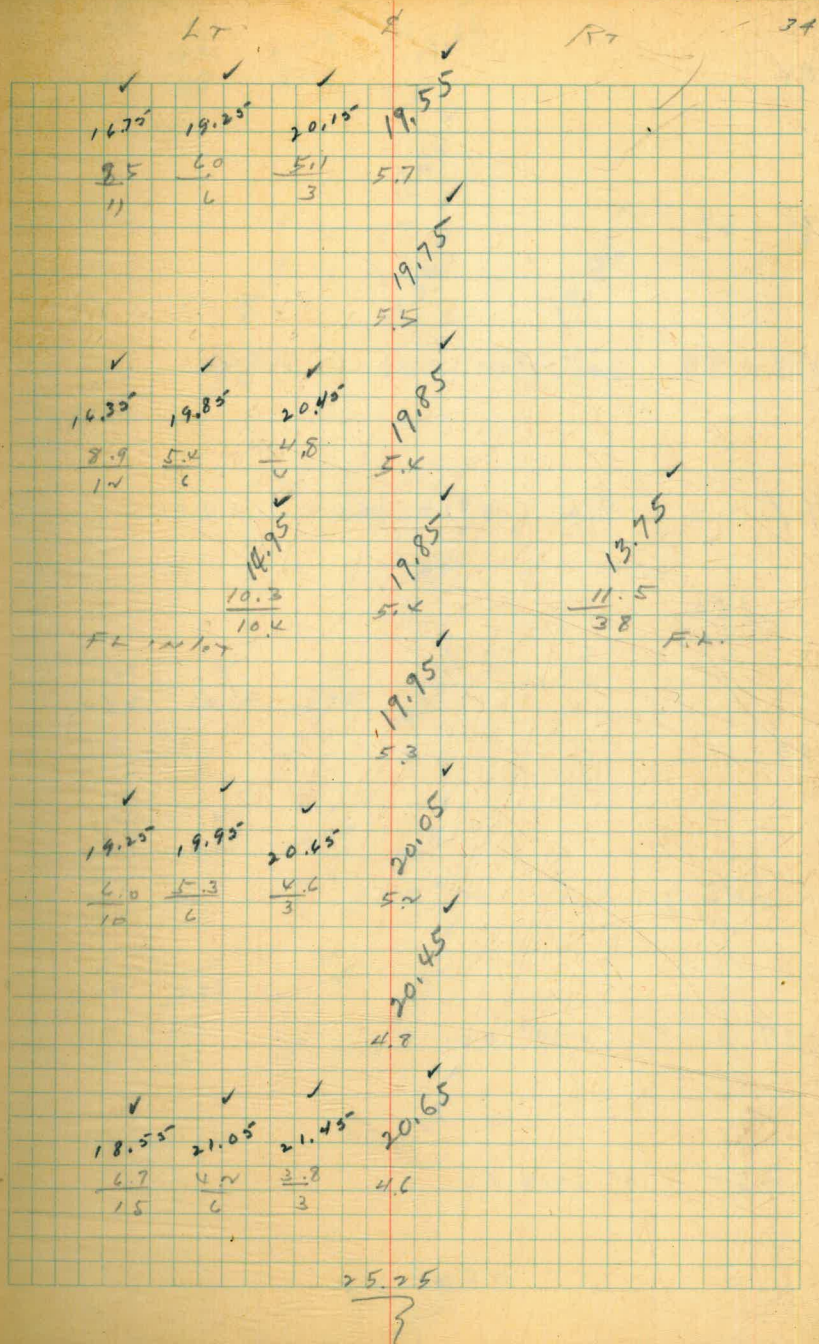 Lt ℄ Rt 34
✓ ✓ ✓ ✓
16.75 19.25 20.15 19.55
8.5 6.0 5.1 5.7
11 6 3
✓
19.75
5.5
✓ ✓ ✓ ✓
16.35 19.85 20.45 19.85
8.9 5.4 4.8 5.4
12 6 6
✓ ✓ ✓
14.95 19.85 13.75
10.3 5.4 11.5
10.4 38
FL inlet F.L.
✓
19.95
5.3
✓ ✓ ✓ ✓
19.25 19.95 20.65 20.05
6.0 5.3 4.6 5.2
10 6 3
✓
20.45
4.8
✓ ✓ ✓ ✓
18.55 21.05 21.45 20.65
6.7 4.2 3.8 4.6
15 6 3
25.25